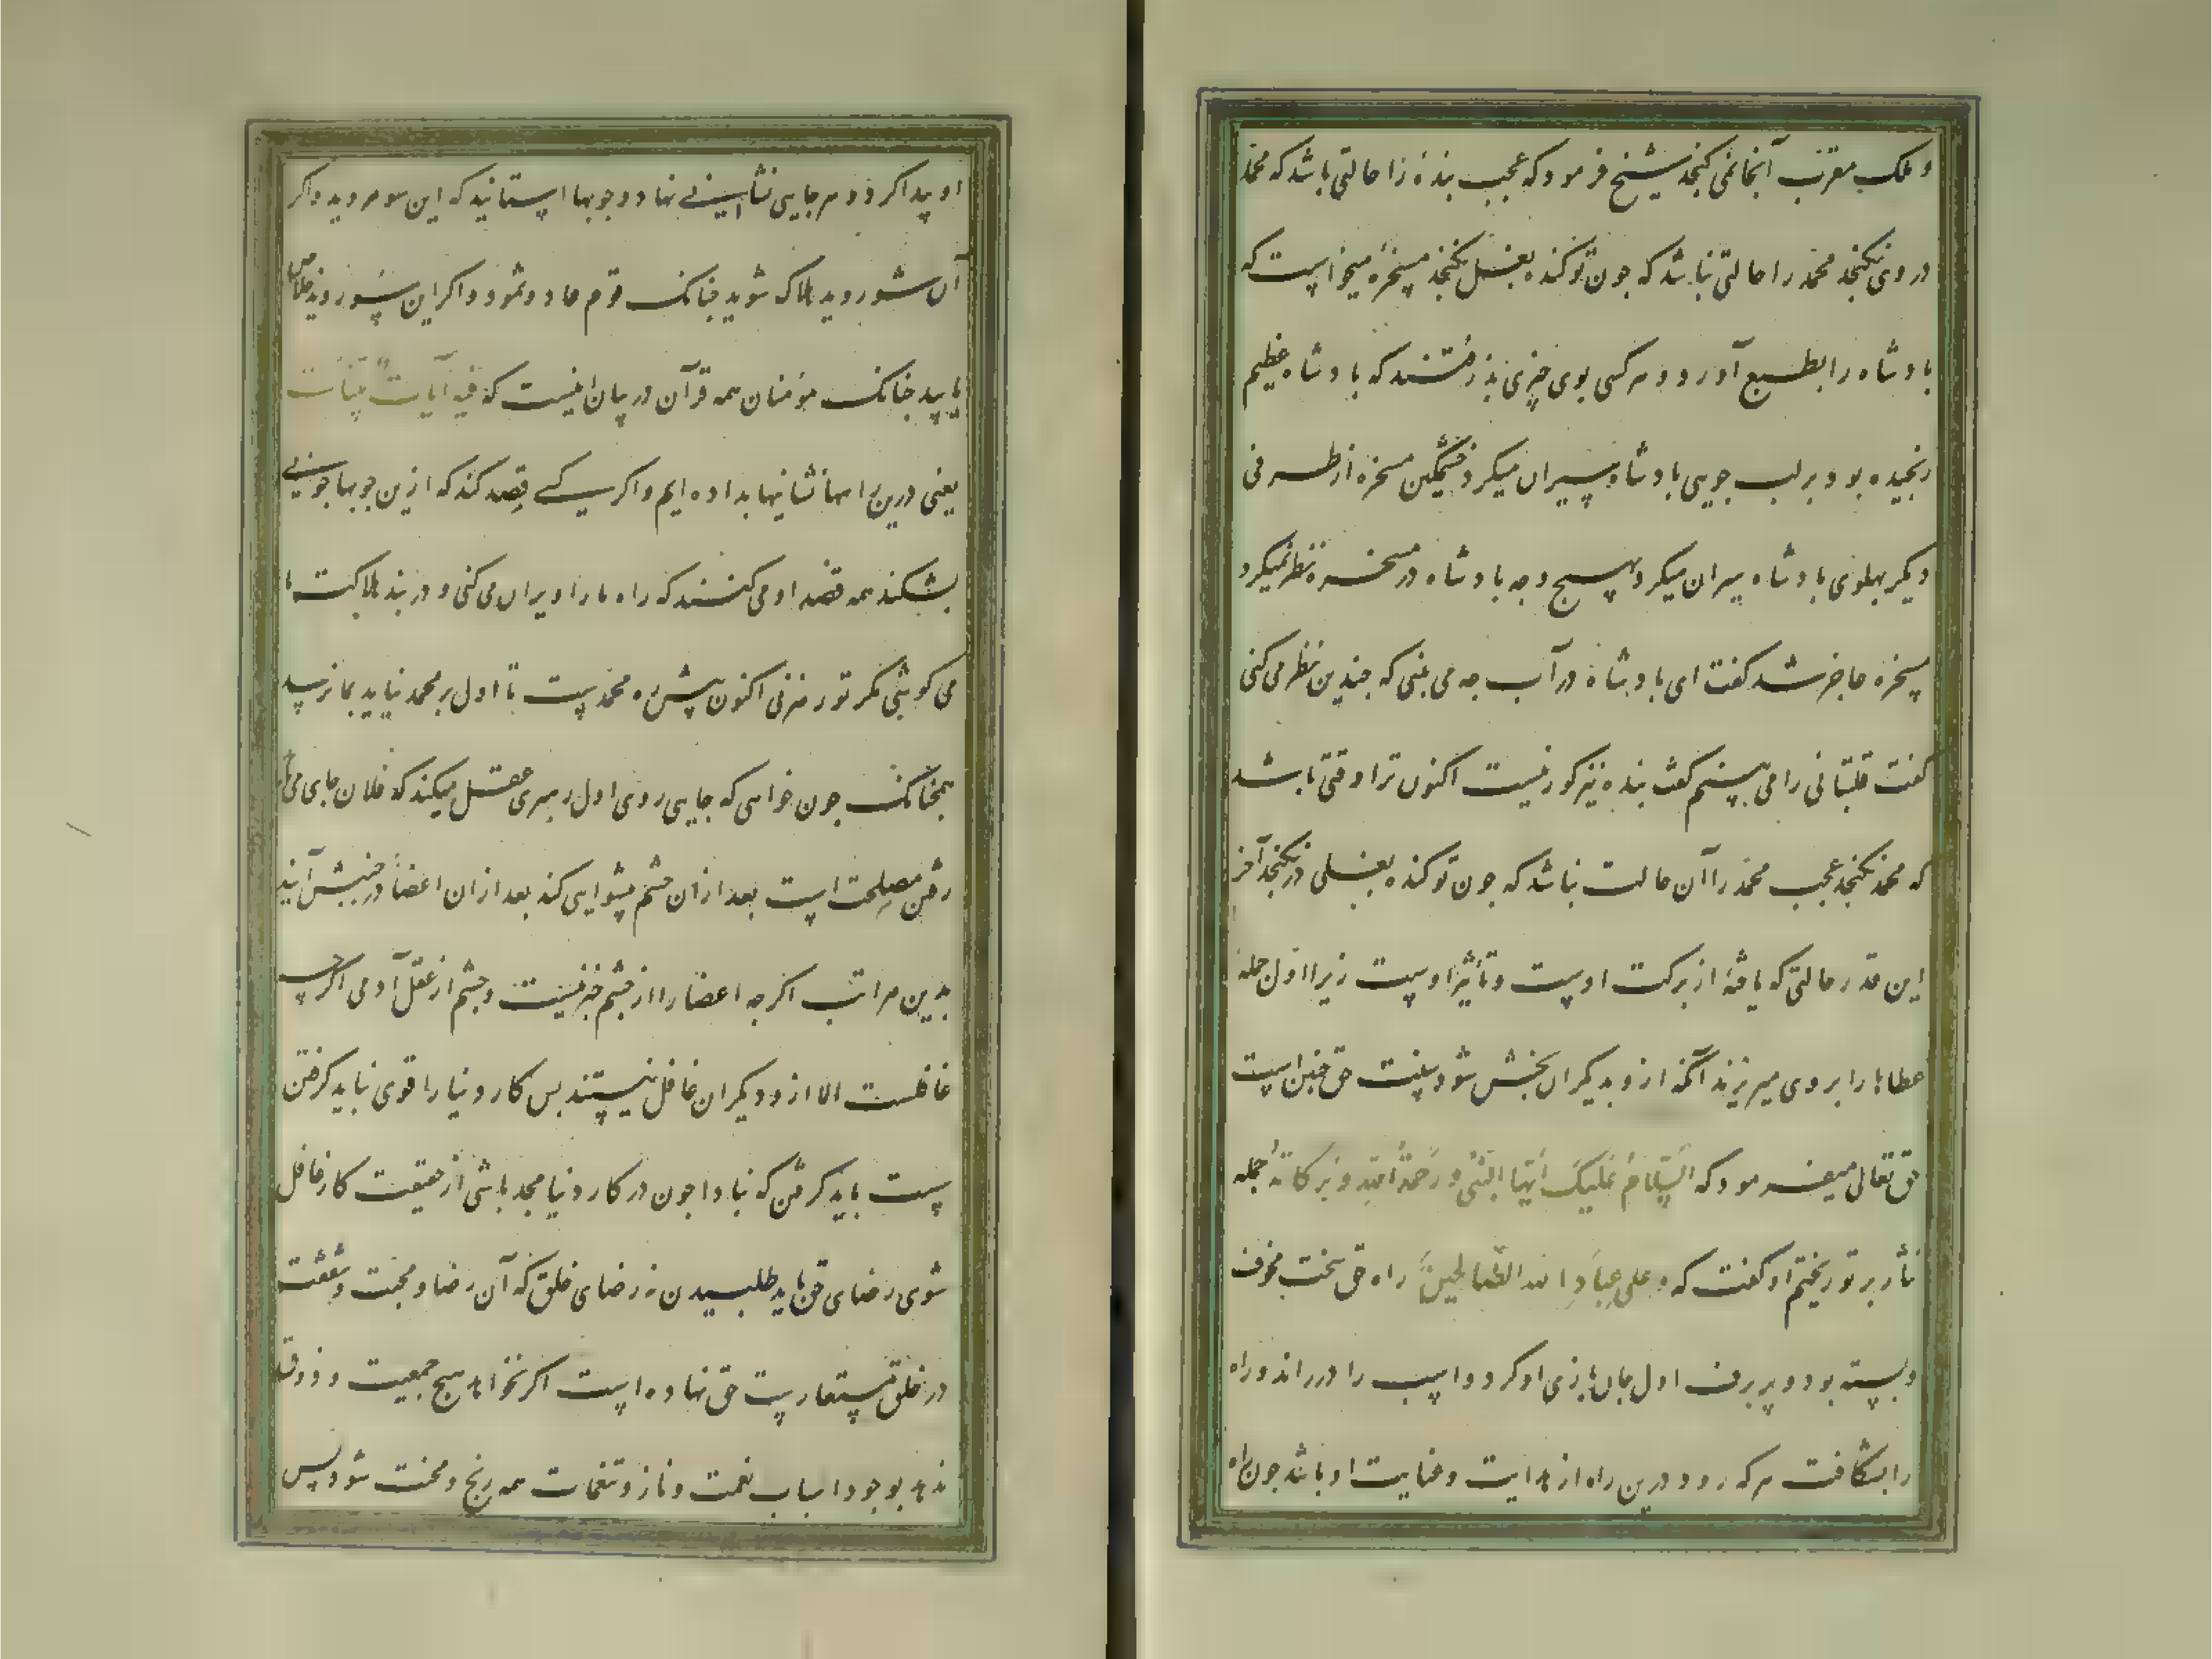 و ملک مقرب آنجا نمی کنجد شیخ فرمود که عجب بنده را حالتی باشد که محمد
در وی نکنجد محمد را حالتی نباشد که جون تو کنده بغل نکنجد مسخرهٔ میخواست که
بادشاه را بطبع آورد و هر کسی بوی جیزی بذرفتند که بادشاه عظیم
رنجیده بود بر لب جویی بادشاه سیران میکرد خشمکین مسخره از طرفی
دیکر بهلوی بادشاه سیران میکرد بهیج وجه بادشاه در مسخره نظر نمیکرد
مسخره عاجز شد کفت ای بادشاه در آب جه می بینی که جندین نظر می کنی
کفت قلتبانی را می بینم کفت بنده نیز کور نیست اکنون ترا وقتی باشد
که محمد نکنجد عجب محمد را آن حالت نباشد که جون تو کنده بغلی در نکنجد آخر
این قدر حالتی که یافتهٔ از برکت اوست و تأثیر اوست زیرا اول جمله
عطاها را بر وی میریزند آنکه ازو بدیکران بخش شود سنت حق جنین است
حق تعالی میفرمود که السَّلامُ عَلَیکَ اَیُّهَا النَّبِیُّ وَ رَحمَةُ اللهِ وَ بَرَکاتُهُ جمله
نثار بر تو ریختم او کفت که و علی عِبادِ الله الصّالحینَ راه حق سخت مخوف
و بسته بود و پر برف اول جان بازی او کرد و اسب را در راند و راه
را بشکافت هر که رود درین راه از هدایت و عنایت او باشد جون راه
او پیدا کرد و هر جایی نشانی نهاد و جوبها استانید که این سو مروید و اکر
آن سو روید هلاک شوید جنانک قوم عاد و ثمود و اکر این سو روید خلاص
یابید جنانک مؤمنان همه قرآن در بیان اینست که فیهِ آیاتٌ بَیِّنَاتٌ
یعنی درین راهها نشانیها بداده ایم و اکر کسی قصد کند که ازین جوبها جوبی
بشکند همه قصد او می کنند که راه ما را ویران می کنی و در بند هلاکت ما
می کوشی مکر تو رهزنی اکنون پیش رو محمدست تا اول بر محمد نیاید بما نرسد
همجنانک جون خواهی که جایی روی اول رهبری عقل میکند که فلان جای می باید
رفتن مصلحت است بعد از آن جشم پیشوایی کند بعد از آن اعضا در جنبش آیند
بدین مراتب اکر جه اعضا را از جشم خبر نیست و جشم از عقل آدمی اکر جه
غافلست الا ازو دیکران غافل نیستند بس کار دنیا را قوی نباید کرفتن
سست باید کرفتن که نبادا جون در کار دنیا مجد باشی از حقیقت کار غافل
شوی رضای حق باید طلبیدن نه رضای خلق که آن رضا و محبت و شفقت
در خلق مستعارست حق نهاده است اکر نخواهد هیج جمعیت و ذوق
ندهد بوجود اسباب نعمت و ناز و تنعمات همه رنج و محنت شود پس